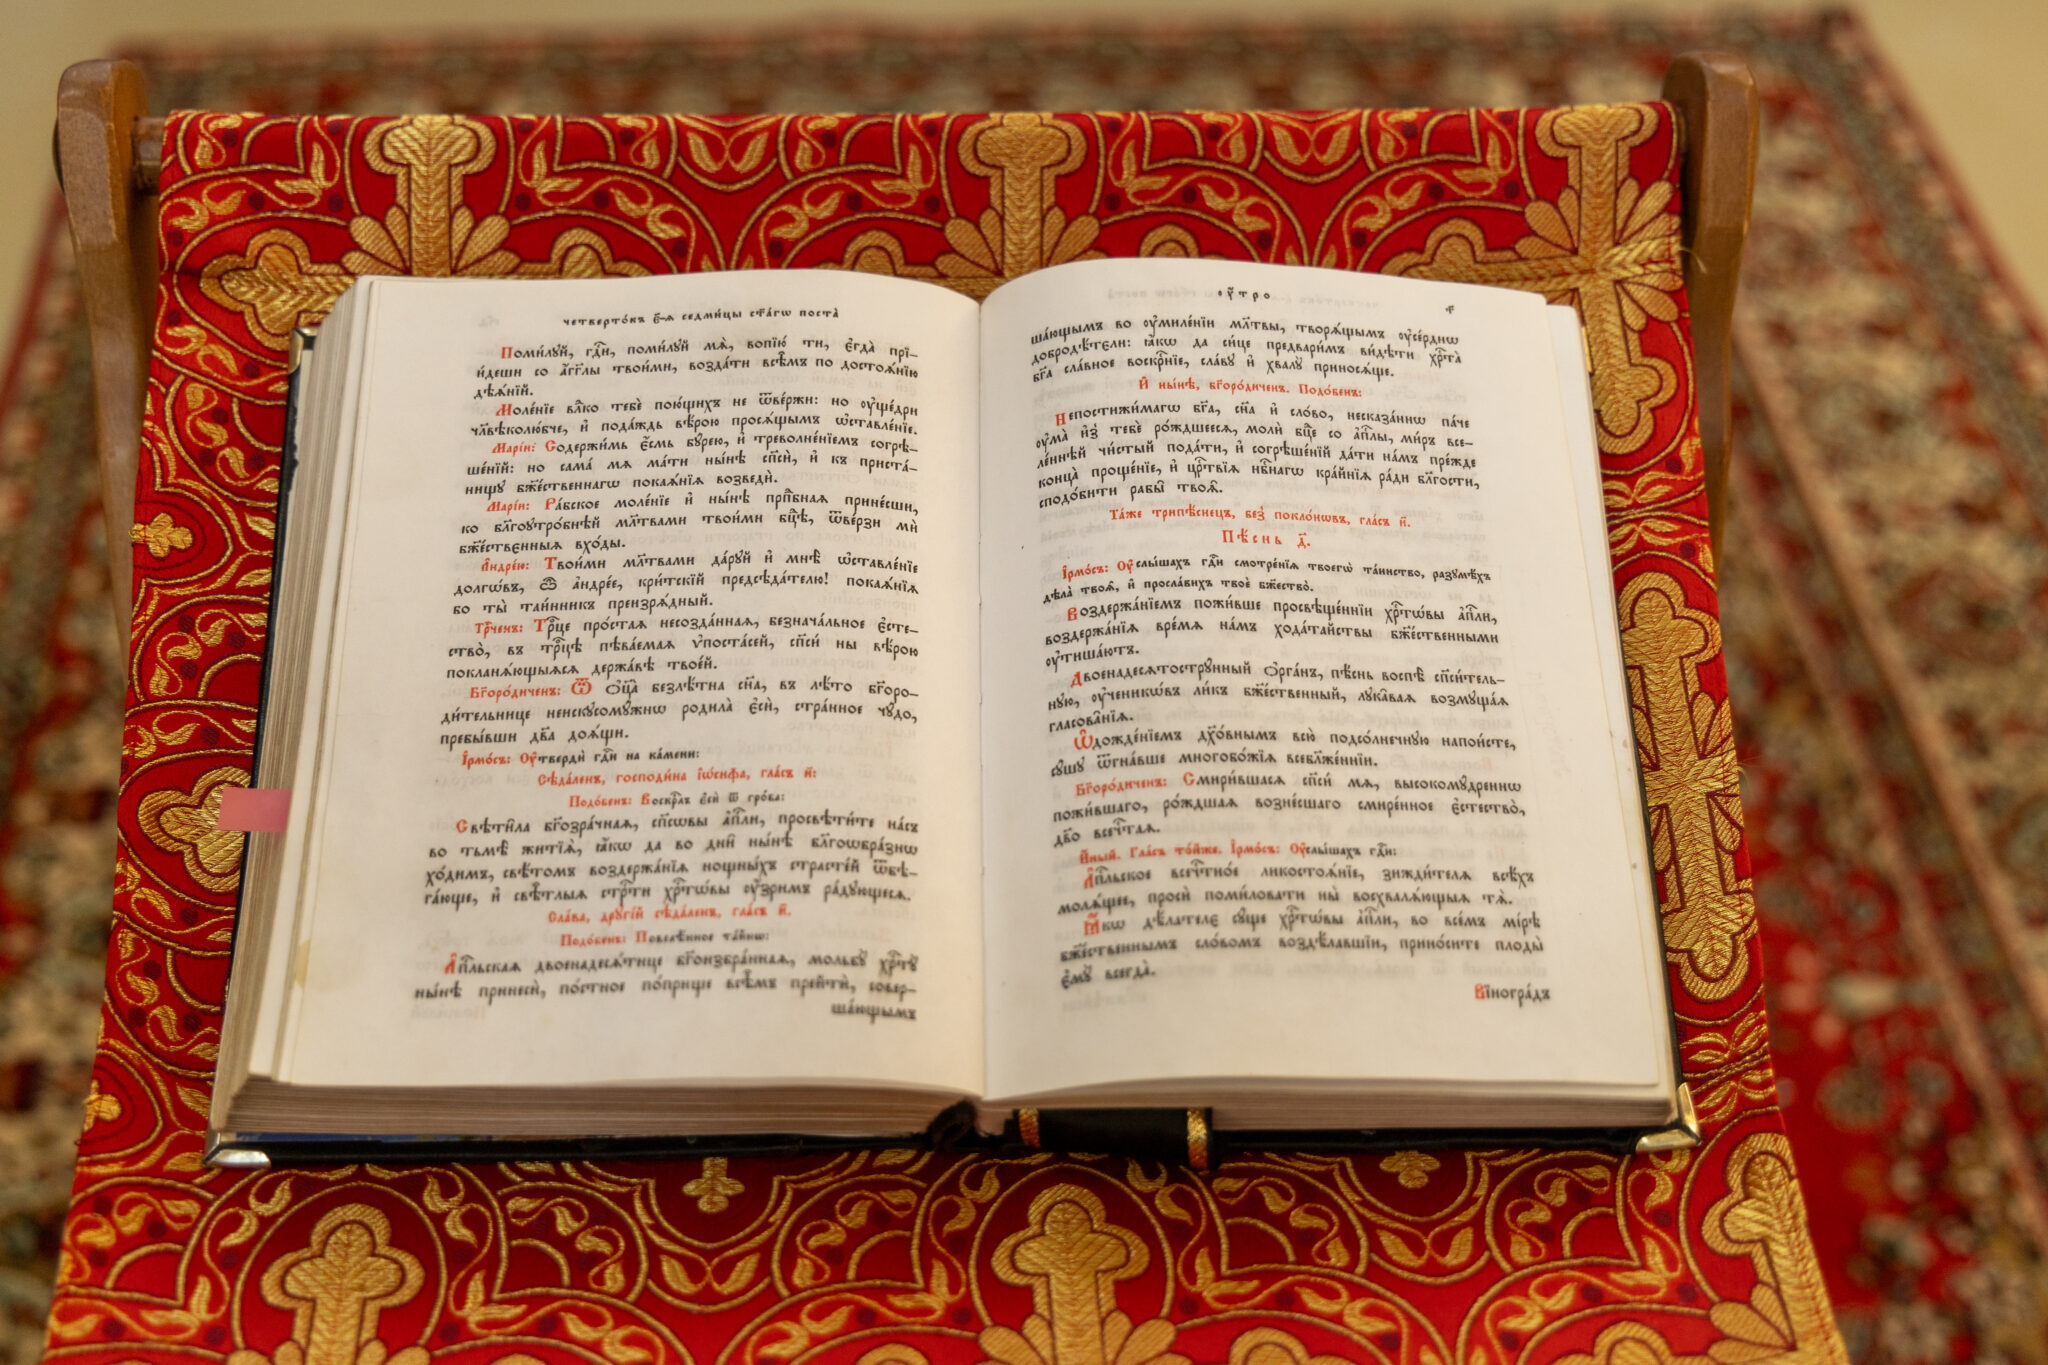 четверто́къ є҃-ѧ седми́цы ст҃а́гѡ поста̀
Поми́лꙋй, гдⷭ҇и, поми́лꙋй мѧ̀, вопїю́ ти, є҆гда̀ прї-
и́деши со а҆́гг҃лы твои́ми, возда́ти всѣ̑мъ по достоѧ́нїю
дѣѧ́нїй.
Моле́нїе влⷣко тебѐ пою́щихъ не ѿве́ржи: но ᲂу҆ще́дри
чл҃вѣколю́бче, и҆ пода́ждь вѣ́рою просѧ́щымъ ѡ҆ставле́нїе.
Марі́и: Содержи́мь є҆́смь бꙋ́рею, и҆ треволне́нїемъ согрѣ-
ше́нїй: но сама́ мѧ ма́ти ны́нѣ сп҃сѝ, и҆ къ приста́-
нищꙋ бж҃е́ственнагѡ покаѧ́нїѧ возведѝ.
Марі́и: Ра́бское моле́нїе и҆ ны́нѣ прпⷣбнаѧ прине́сши,
ко бл҃гоꙋтро́бнѣй мл҃твами твои́ми бцⷣѣ, ѿве́рзи мѝ
бж҃е́ствєнныѧ вхо́ды.
А҆ндре́ю: Твои́ми мл҃твами да́рꙋй и҆ мнѣ̀ ѡ҆ставле́нїе
долгѡ́въ, ѽ а҆ндре́е, кри́тскїй предсѣда́телю! покаѧ́нїѧ
бо ты̀ таи́нникъ преизрѧ́дный.
Трⷪ҇ченъ: Трⷪ҇це про́стаѧ несозда́ннаѧ, безнача́льное є҆сте-
ство̀, въ трⷪ҇цѣ пѣва́емаѧ ѵ҆поста́сей, сп҃си́ ны вѣ́рою
покланѧ́ющыѧсѧ держа́вѣ твое́й.
Бг҃оро́диченъ: Ѿ ѻ҆ц҃а̀ безлѣ́тна сн҃а, въ лѣ́то бг҃оро-
ди́тельнице неискꙋсомꙋ́жнѡ родила̀ є҆сѝ, стра́нное чꙋ́до,
пребы́вши дв҃а доѧ́щи.
І҆рмо́съ: Оу҆тверди́ гдⷭ҇и на ка́мени:
Сѣда́ленъ, господи́на і҆ѡ́сифа, гла́съ и҃:
Подо́бенъ: Воскр҃лъ є҆сѝ ѿ гро́ба:
Свѣти̑ла бг҃озра̑чнаѧ, сп҃сѡвы а҆пⷭ҇ли, просвѣти́те на́съ
во тьмѣ̀ житїѧ̀, ꙗ҆́кѡ да во дни̑ ны́нѣ бл҃гоѡбра́знѡ
хо́димъ, свѣ́томъ воздержа́нїѧ нощны́хъ страсте́й ѿбѣ-
га́юще, и҆ свѣ̑тлыѧ стрⷭ҇ти хрⷭ҇тѡ́вы ᲂу҆́зримъ ра́дꙋющесѧ.
Сла́ва, дрꙋгі́й сѣда́ленъ, гла́съ и҃.
Подо́бенъ: Повелѣ́нное та́йнѡ:
А҆пⷭ҇льскаѧ двоенадесѧ́тице бг҃оизбра́ннаѧ, мольбꙋ̀ хрⷭ҇тꙋ̀
ны́нѣ принесѝ, по́стное по́прище всѣ̑мъ прейтѝ, совер-
ша́ющымъ
ᲂу҆́тро
ша́ющымъ во ᲂу҆миле́нїи мл҃твы, творѧ́щымъ ᲂу҆се́рднѡ
добродѣ́тєли: ꙗ҆́кѡ да си́це предвари́мъ ви́дѣти хрⷭ҇та̀
бг҃а сла́вное воскрⷭ҇нїе, сла́вꙋ и҆ хвалꙋ̀ принося́ще.
И҆ ны́нѣ, бг҃оро́диченъ. Подо́бенъ:
Непостижи́магѡ бг҃а, сн҃а и҆ сло́во, несказа́ннѡ па́че
ᲂу҆ма̀ и҆з̾ тебѐ ро́ждшеесѧ, молѝ бцⷣе со а҆пⷭ҇лы, ми́ръ все-
ле́ннѣй чи́стый пода́ти, и҆ согрѣше́нїй да́ти на́мъ пре́жде
конца̀ проще́нїе, и҆ црⷭ҇твїѧ нбⷭ҇нагѡ кра́йнїѧ ра́ди бл҃гости,
сподо́бити рабы̑ твоѧ̑.
Та́же трипѣ́снецъ, без̾ покло́нѡвъ, гла́съ и҃.
Пѣ́снь д҃.
І҆рмо́съ: Оу҆слы́шахъ гдⷭ҇и смотре́нїѧ твоегѡ̀ та́инство, разꙋмѣ́хъ
дѣла̀ твоѧ̑, и҆ просла́вихъ твоѐ бж҃ество̀.
Воздержа́нїемъ пожи́вше просвѣще́ннїи хрⷭ҇тѡ́вы а҆пⷭ҇ли,
воздержа́нїѧ вре́мѧ на́мъ хода́тайствы бж҃е́ственными
ᲂу҆тиша́ютъ.
Двоенадесѧтостры́нный ѻ҆рга́нъ, пѣ́снь воспѣ̀ сп҃си́тель-
нꙋю, ᲂу҆ченикѡ́въ ли́къ бж҃е́ственный, лꙋка̑ваѧ возмꙋща́ѧ
гласова̑нїѧ.
Ѡ҆дожде́нїемъ дх҃о́внымъ всю̀ подсо́лнечнꙋю напои́сте,
сꙋ́шꙋ ѿгна́вше многобо́жїѧ всебл҃же́ннїи.
Бг҃оро́диченъ: Смири́вшасѧ сп҃си́ мѧ, высокомꙋ́дреннѡ
пожи́вшаго, ро́ждшаѧ возне́сшаго смире́нное є҆стество̀,
дв҃о всечⷭ҇таѧ.
И҆ны́й. Гла́съ то́йже. І҆рмо́съ: Оу҆слы́шахъ гдⷭ҇и:
А҆пⷭ҇льское всечⷭ҇тно́е ликостоѧ́нїе, зижди́телѧ всѣ́хъ
молѧ́щее, просѝ поми́ловати ны̀ восхвалѧ́ющыѧ тѧ̀.
Ꙗ҆́кѡ дѣ́лателє сꙋ́ще хрⷭ҇тѡ́вы а҆пⷭ҇ли, во все́мъ мі́рѣ
бж҃е́ственнымъ сло́вомъ воздѣ́лавшїи, приноси́те плоды̀
є҆мꙋ̀ всегда̀.
Віногра́дъ